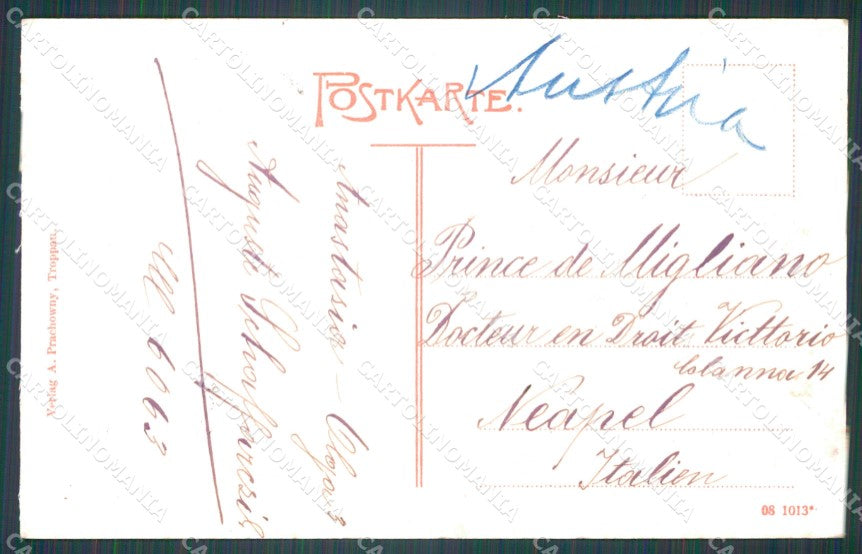 POSTKARTE.
Austria
Monsieur
Prince de Migliano
Docteur en Droit Victtorio
Colanna 14
Neapel
Italien
Anastasia
Auguste
6063
Verlag A. Prachowny, Troppau.
08 1013*
CARTOLINOMANIA